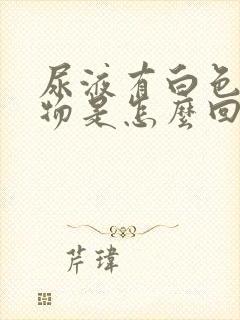 尿液有白色
物是怎麼回
芹瑋